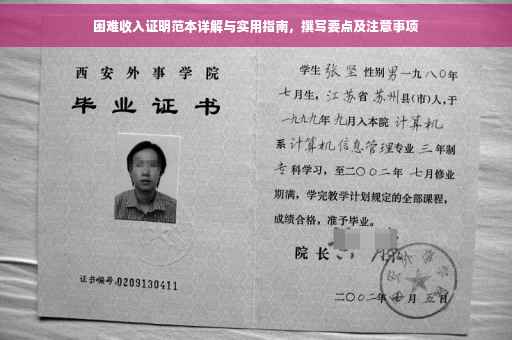 困难收入证明范本详解与实用指南，撰写要点及注意事项
西安外事学院
毕业证书
证书编号:0209130411
学生 张坚 性别 男 一九八〇年
七月生，江苏省 苏州县(市)人，于
一九九九年 九月入本院 计算机
系 计算机信息管理专业 三 年制
专 科学习，至二〇〇二年 七月修业
期满，学完教学计划规定的全部课程，
成绩合格，准予毕业。
院 长
二〇〇二年 月 五日